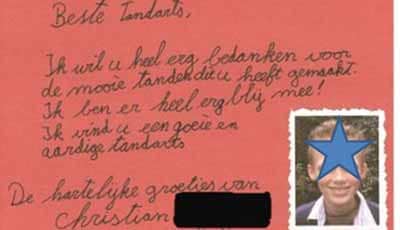 Beste Tandarts,
Ik wil u heel erg bedanken voor
de mooie tanden dit u heeft gemaakt.
Ik ben er heel erg blij mee!
Ik vind u een goeie en
aardige tandarts
De hartelijke groetjes van
Christian